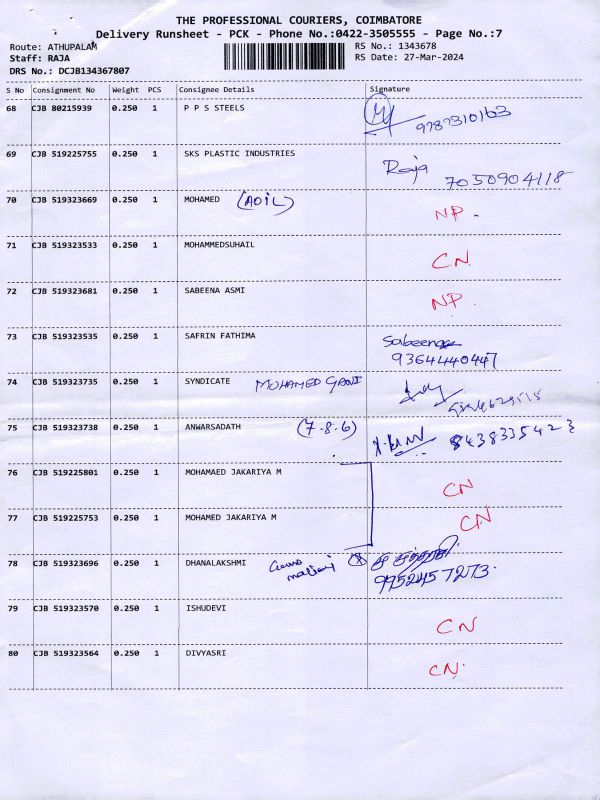 THE PROFESSIONAL COURIERS, COIMBATORE
Delivery Runsheet - PCK - Phone No.:0422-3505555 - Page No.:7
Route: ATHUPALAM RS No.: 1343678
Staff: RAJA RS Date: 27-Mar-2024
DRS No.: DCJB134367807
S No Consignment No Weight PCS Consignee Details Signature
68 CJB 80215939 0.250 1 P P S STEELS
69 CJB 519225755 0.250 1 SKS PLASTIC INDUSTRIES Raja
7050904118
70 CJB 519323669 0.250 1 MOHAMED (ADIL) NP.
71 CJB 519323533 0.250 1 MOHAMMEDSUHAIL CN
72 CJB 519323681 0.250 1 SABEENA ASMI NP.
73 CJB 519323535 0.250 1 SAFRIN FATHIMA Sabeena
9364440447
74 CJB 519323735 0.250 1 SYNDICATE MOHAMED GANI
75 CJB 519323738 0.250 1 ANWARSADATH (7-8.6) 8438335423
76 CJB 519225801 0.250 1 MOHAMAED JAKARIYA M CN
77 CJB 519225753 0.250 1 MOHAMED JAKARIYA M CN
78 CJB 519323696 0.250 1 DHANALAKSHMI
9952457273.
79 CJB 519323570 0.250 1 ISHUDEVI CN
80 CJB 519323564 0.250 1 DIVYASRI CN.